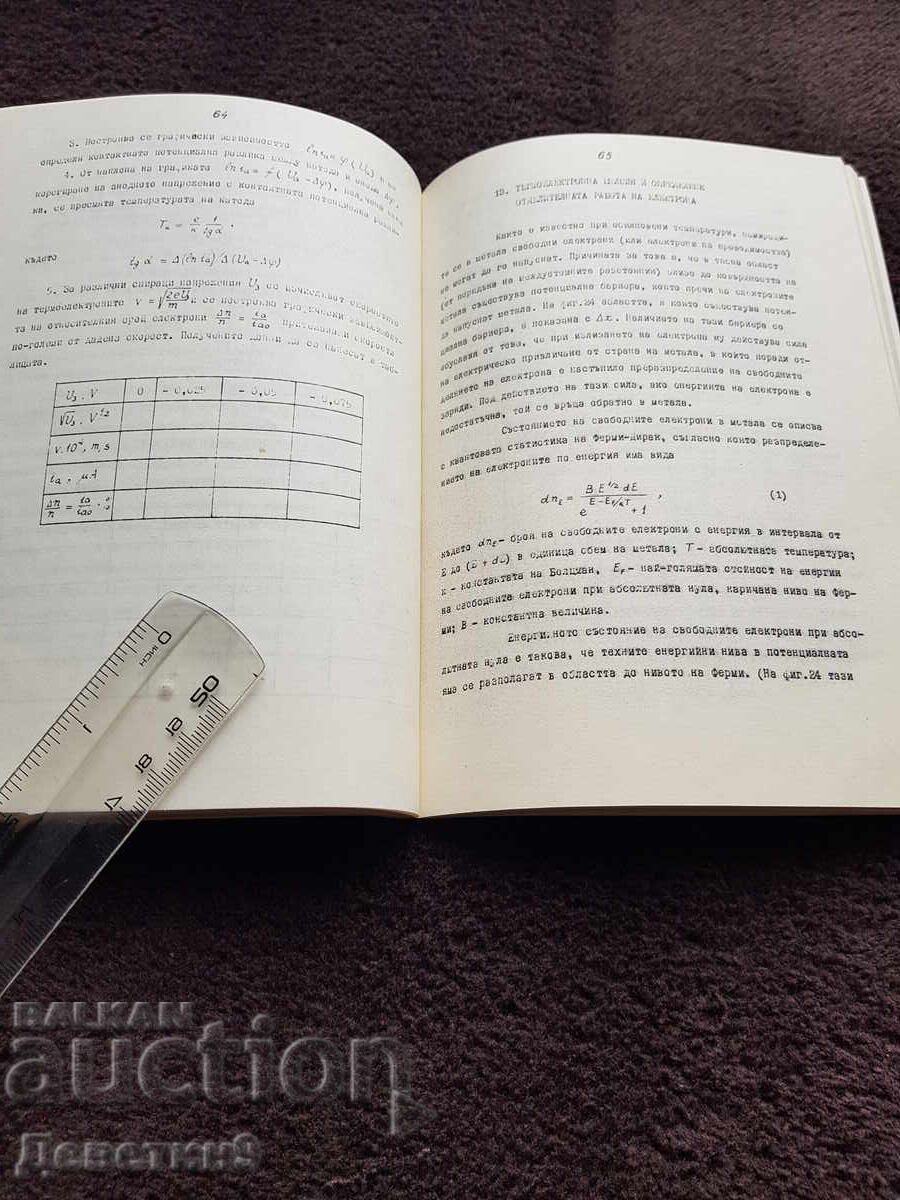 64
3. Построява се графически зависимостта ln iа = φ(Uа) и се
определя контактната потенциална разлика между катода и анода Δφ.
4. От наклона на графиката ln iа = f(Uа - Δφ), получена след
коригиране на анодното напрежение с контактната потенциална разли-
ка, се пресмята температурата на катода
Tк = e/к 1/tg α .
където tg α = Δ(ln iа)/Δ(Uа - Δφ)
5. За различни спиращи напрежения U₃ се изчисляват скоростта
на термоелектроните V = √(2eU₃/m) и се построява графически зависимост-
та на относителния брой електрони Δn/n = iа/iао притежаващи скорости
по-големи от дадена скорост. Получените данни да се нанесат в таб-
лицата.
U₃ . V 0 - 0,025 - 0,05 - 0,075
√U₃ . V^1/2
iа , μA
65
13. ТЕРМОЕЛЕКТРОННА ЕМИСИЯ И ОПРЕДЕЛЯНЕ
ОТДЕЛИТЕЛНАТА РАБОТА НА ЕЛЕКТРОНА
Както е известно при обикновени температури, намиращи-
те се в метала свободни електрони (или електрони на проводимостта)
не могат да го напуснат. Причината за това е, че в тясна област
(от порядъка на междуатомните разстояния) близо до повърхността на
метала съществува потенциална бариера, която пречи на електроните
да напуснат метала. На фиг.24 областта, в която съществува потен-
циална бариера, е показана с Δx. Наличието на тази бариера се
обуславя от това, че при излизането на електрона му действува сила
на електрическо привличане от страна на метала, в който поради от-
делянето на електрона е настъпило преразпределение на свободните
заряди. Под действието на тази сила, ако енергията на електрона е
недостатъчна, той се връща обратно в метала.
Състоянието на свободните електрони в метала се описва
с квантовата статистика на Ферми-Дирак, съгласно която разпределе-
нието на електроните по енергия има вида
dnE = B.E^1/2 dE / (e^(E-Ef/кT) + 1) , (1)
където dnE - броя на свободните електрони с енергия в интервала от
E до (E + dE) в единица обем на метала; T - абсолютната температура;
к - константата на Болцман, EF - най-голямата стойност на енергия
на свободните електрони при абсолютната нула, наричана ниво на Фер-
ми; B - константна величина.
Енергийното състояние на свободните електрони при абсо-
лютната нула е такова, че техните енергийни нива в потенциалната
яма се разполагат в областта до нивото на Ферми. (На фиг.24 тази
0
ИНСН
1
50
19
18
17
BALKAN
auction
Деветкин9